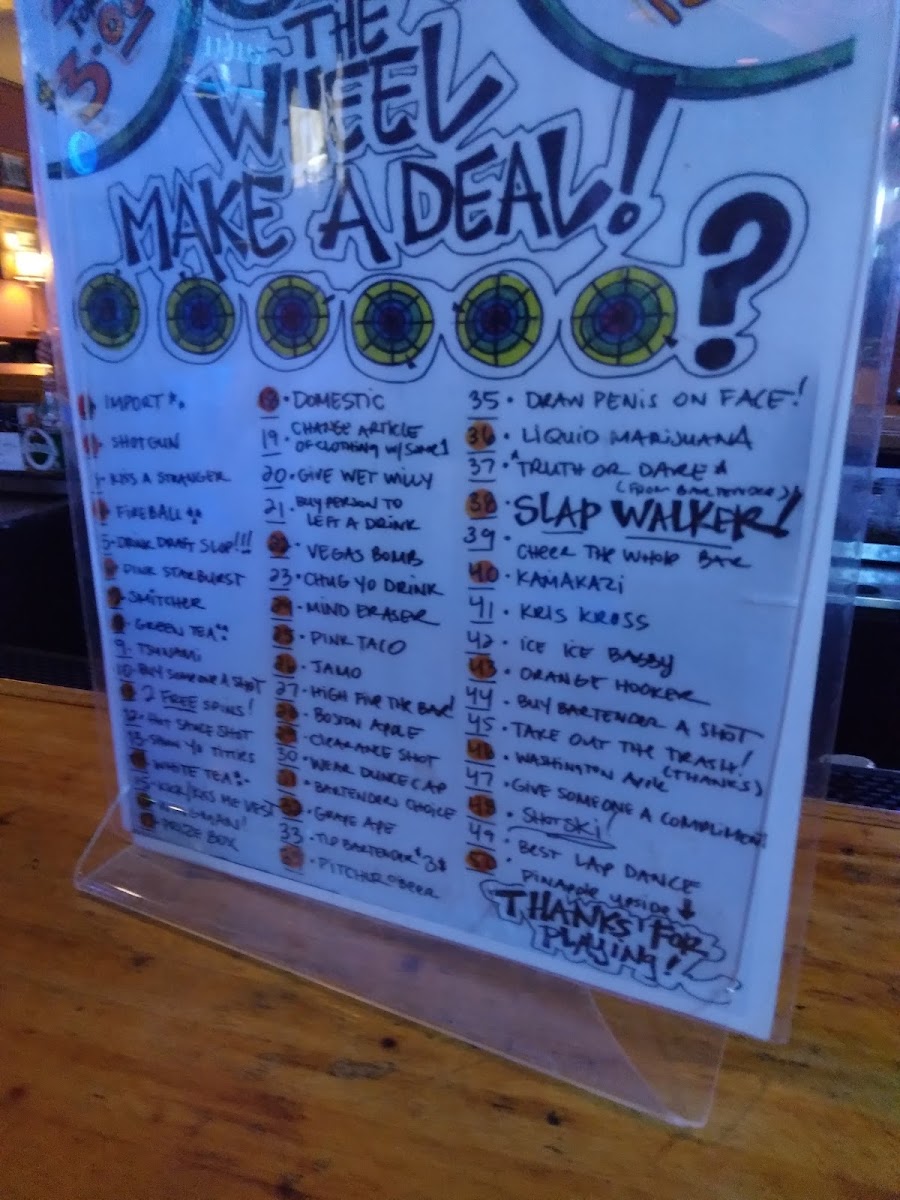 3.00
THE
WHEEL
MAKE A DEAL!
?
IMPORT
SHOTGUN
KISS A STRANGER
FIREBALL
5 - DRINK DRAFT SLOP!!!
PINK STARBURST
SMITCHER
GREEN TEA
9 - TSUNAMI
10 - BUY SOMEONE A SHOT
2 FREE SPINS!
12 - HOT SAUCE SHOT
13 - SPAN YO TITTIES
WHITE TEA
15 - KICK/KISS ME VEST
AGAIN!
PRIZE BOX
18 • DOMESTIC
19 • CHANGE ARTICLE
OF CLOTHING W/SOME1
20 • GIVE WET WILLY
21 • BUY PERSON TO
LEFT A DRINK
22 • VEGAS BOMB
23 • CHUG YO DRINK
24 • MIND ERASER
25 • PINK TACO
26 • JAMO
27 • HIGH FIVE THE BAR!
28 • BOSTON APPLE
29 • CLEARANCE SHOT
30 • WEAR DUNCE CAP
31 • BARTENDERS CHOICE
32 • GRAPE APE
33 • TIP BARTENDER $3$
34 • PITCHER O BEER
35 • DRAW PENIS ON FACE!
36 • LIQUID MARIJUANA
37 • TRUTH OR DARE
(FROM BARTENDER)
38 • SLAP WALKER!
39 • CHEER THE WHOLE BAR
40 • KAMAKAZI
41 • KRIS KROSS
42 • ICE ICE BABBY
43 • ORANGE HOOKER
44 • BUY BARTENDER A SHOT
45 • TAKE OUT THE TRASH!
(THANKS)
46 • WASHINGTON APPLE
47 • GIVE SOMEONE A COMPLIMENT
48 • SHOTSKI
49 • BEST LAP DANCE
50 • PINAPPLE UPSIDE ↓
THANKS FOR
PLAYING!